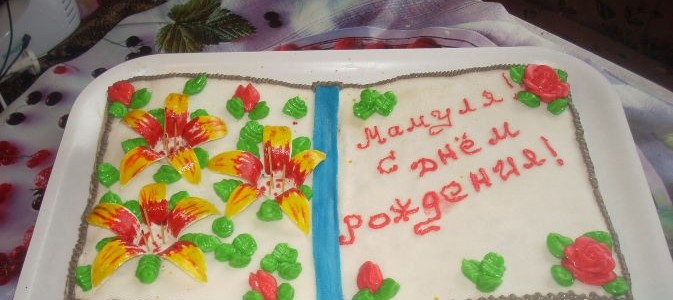 Мамуля!
с днём
рождения!